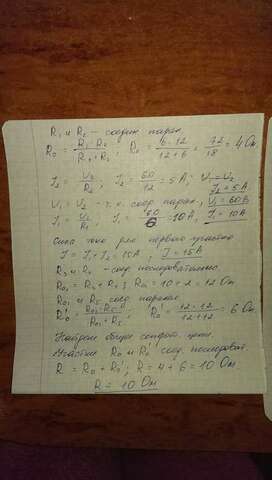 R₁ и R₂ – соедин. парал
R₀ = R₁·R₂ / R₁+R₂ ; R₀ = 6·12 / 12+6 = 72 / 18 = 4 Ом
I₂ = U₂ / R₂ , I₂ = 60 / 12 = 5 А, U₁ = U₂ I₂ = 5 А
U₁ = U₂ т.к. соед парал, U₁ = 60 В
I₁ = U₁ / R₁ , I₁ = 60 / 6 = 10 А, I₁ = 10 А
Сила тока для первого участка
I = I₁ + I₂ = 15 А, I = 15 А
R₃ и R₄ – соед. последовательно
R₀₁ = R₃ + R₄ ; R₀₁ = 10 + 2 = 12 Ом
R₀₁ и R₅ соед паралел
R₀' = R₀₁·R₅ / R₀₁+R₅ ; R₀' = 12·12 / 12+12 = 6 Ом.
Найдем общее сопрот. цепи.
Участки R₀ и R₀' соед. последоват
R = R₀ + R₀' ; R = 4 + 6 = 10 Ом
R = 10 Ом